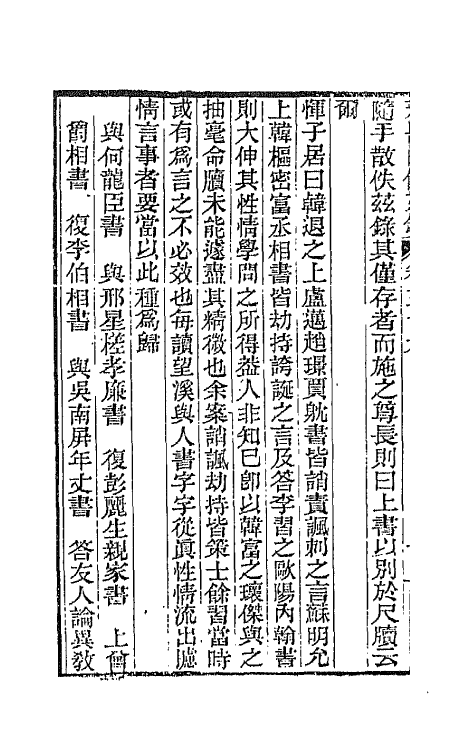 隨手散佚茲錄其僅存者而施之尊長則曰上書以別於尺牘云
爾
惲子居曰韓退之上盧邁趙璟賈躭書皆誚責諷刺之言蘇明允
上韓樞密富丞相書皆劫持誇誕之言及答李習之歐陽內翰書
則大伸其性情學問之所得葢人非知已卽以韓富之瓌傑與之
抽毫命牘未能遽盡其精微也余案誚諷劫持皆策士餘習當時
或有爲言之不必效也每讀望溪與人書字字從眞性情流出攄
情言事者要當以此種爲歸
與何龍臣書　與邢星槎孝廉書　復彭麗生親家書　上曾
簡相書　復李伯相書　與吳南屏年丈書　答友人論異敎